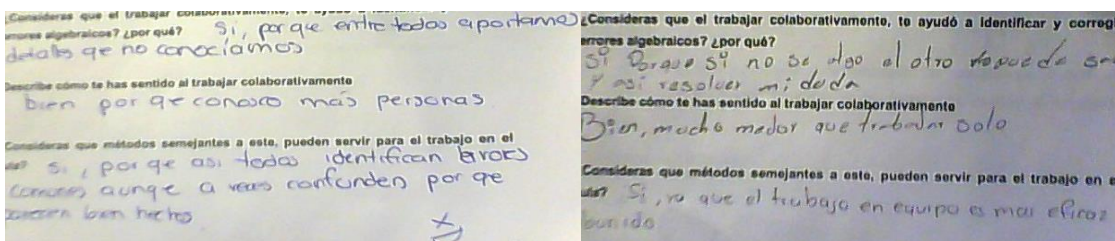 ¿Consideras que el trabajar
errores algebraicos? ¿por qué? Si, porque entre todos aportamos
detalles qe no conociamos
Describe cómo te has sentido al trabajar colaborativamente
bien por qe conosco más personas
Consideras que métodos semejantes a este, pueden servir para el trabajo en el
Si, por qe asi todos identifican errores
comunes aunqe a veces confunden por qe
bien hechos
¿Consideras que el trabajar colaborativamente, te ayudó a identificar y correg
errores algebraicos? ¿por qué?
Si Porque si no se algo el otro
y asi resolver mi duda
Describe cómo te has sentido al trabajar colaborativamente
Bien, mucho mejor que trabajar solo
Consideras que métodos semejantes a este, pueden servir para el trabajo en e
Si, ya que el trabajo en equipo es mas eficaz